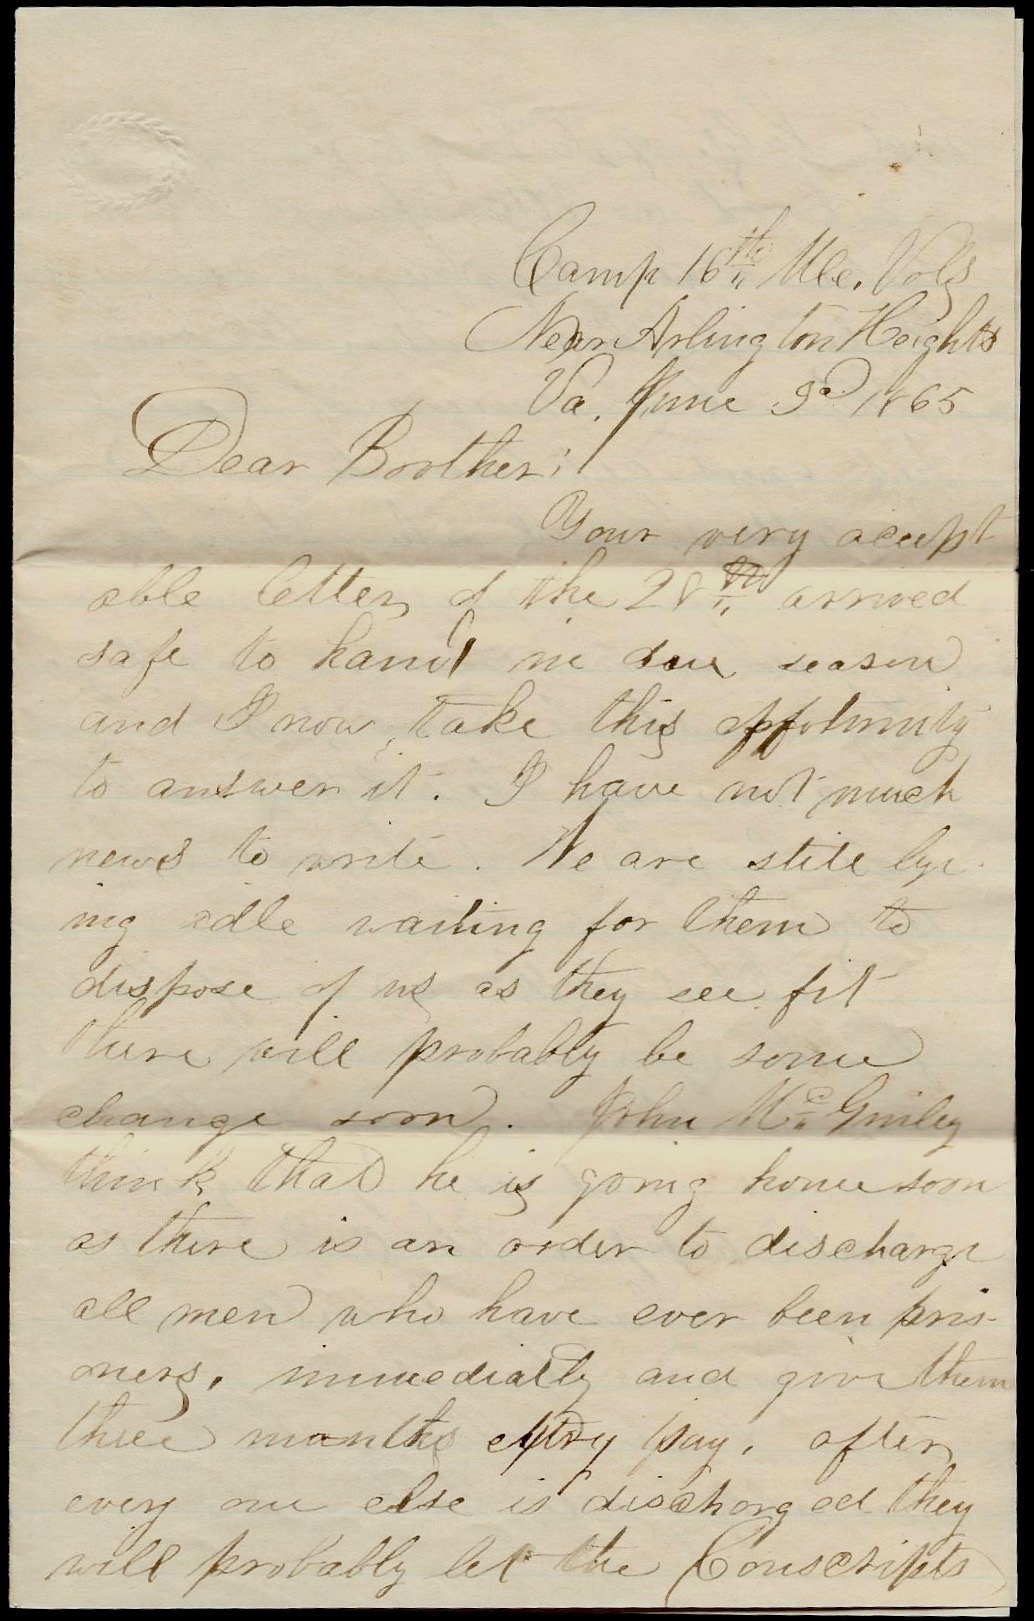 Camp 16th Me. Vols
Near Arlington Heights
Va. June 3d 1865
Dear Brother;
Your very accept
able letter of the 28th arrived
safe to hand in due season
and I now take this opportunity
to answer it. I have not much
news to write. We are still ly-
ing idle waiting for them to
dispose of us as they see fit
there will probably be some
change soon. John McGinley
think that he is going home soon
as there is an order to discharge
all men who have ever been pris-
oners, immediatly and give them
three months extry pay. after
every one else is discharged they
will probably let the Conscripts